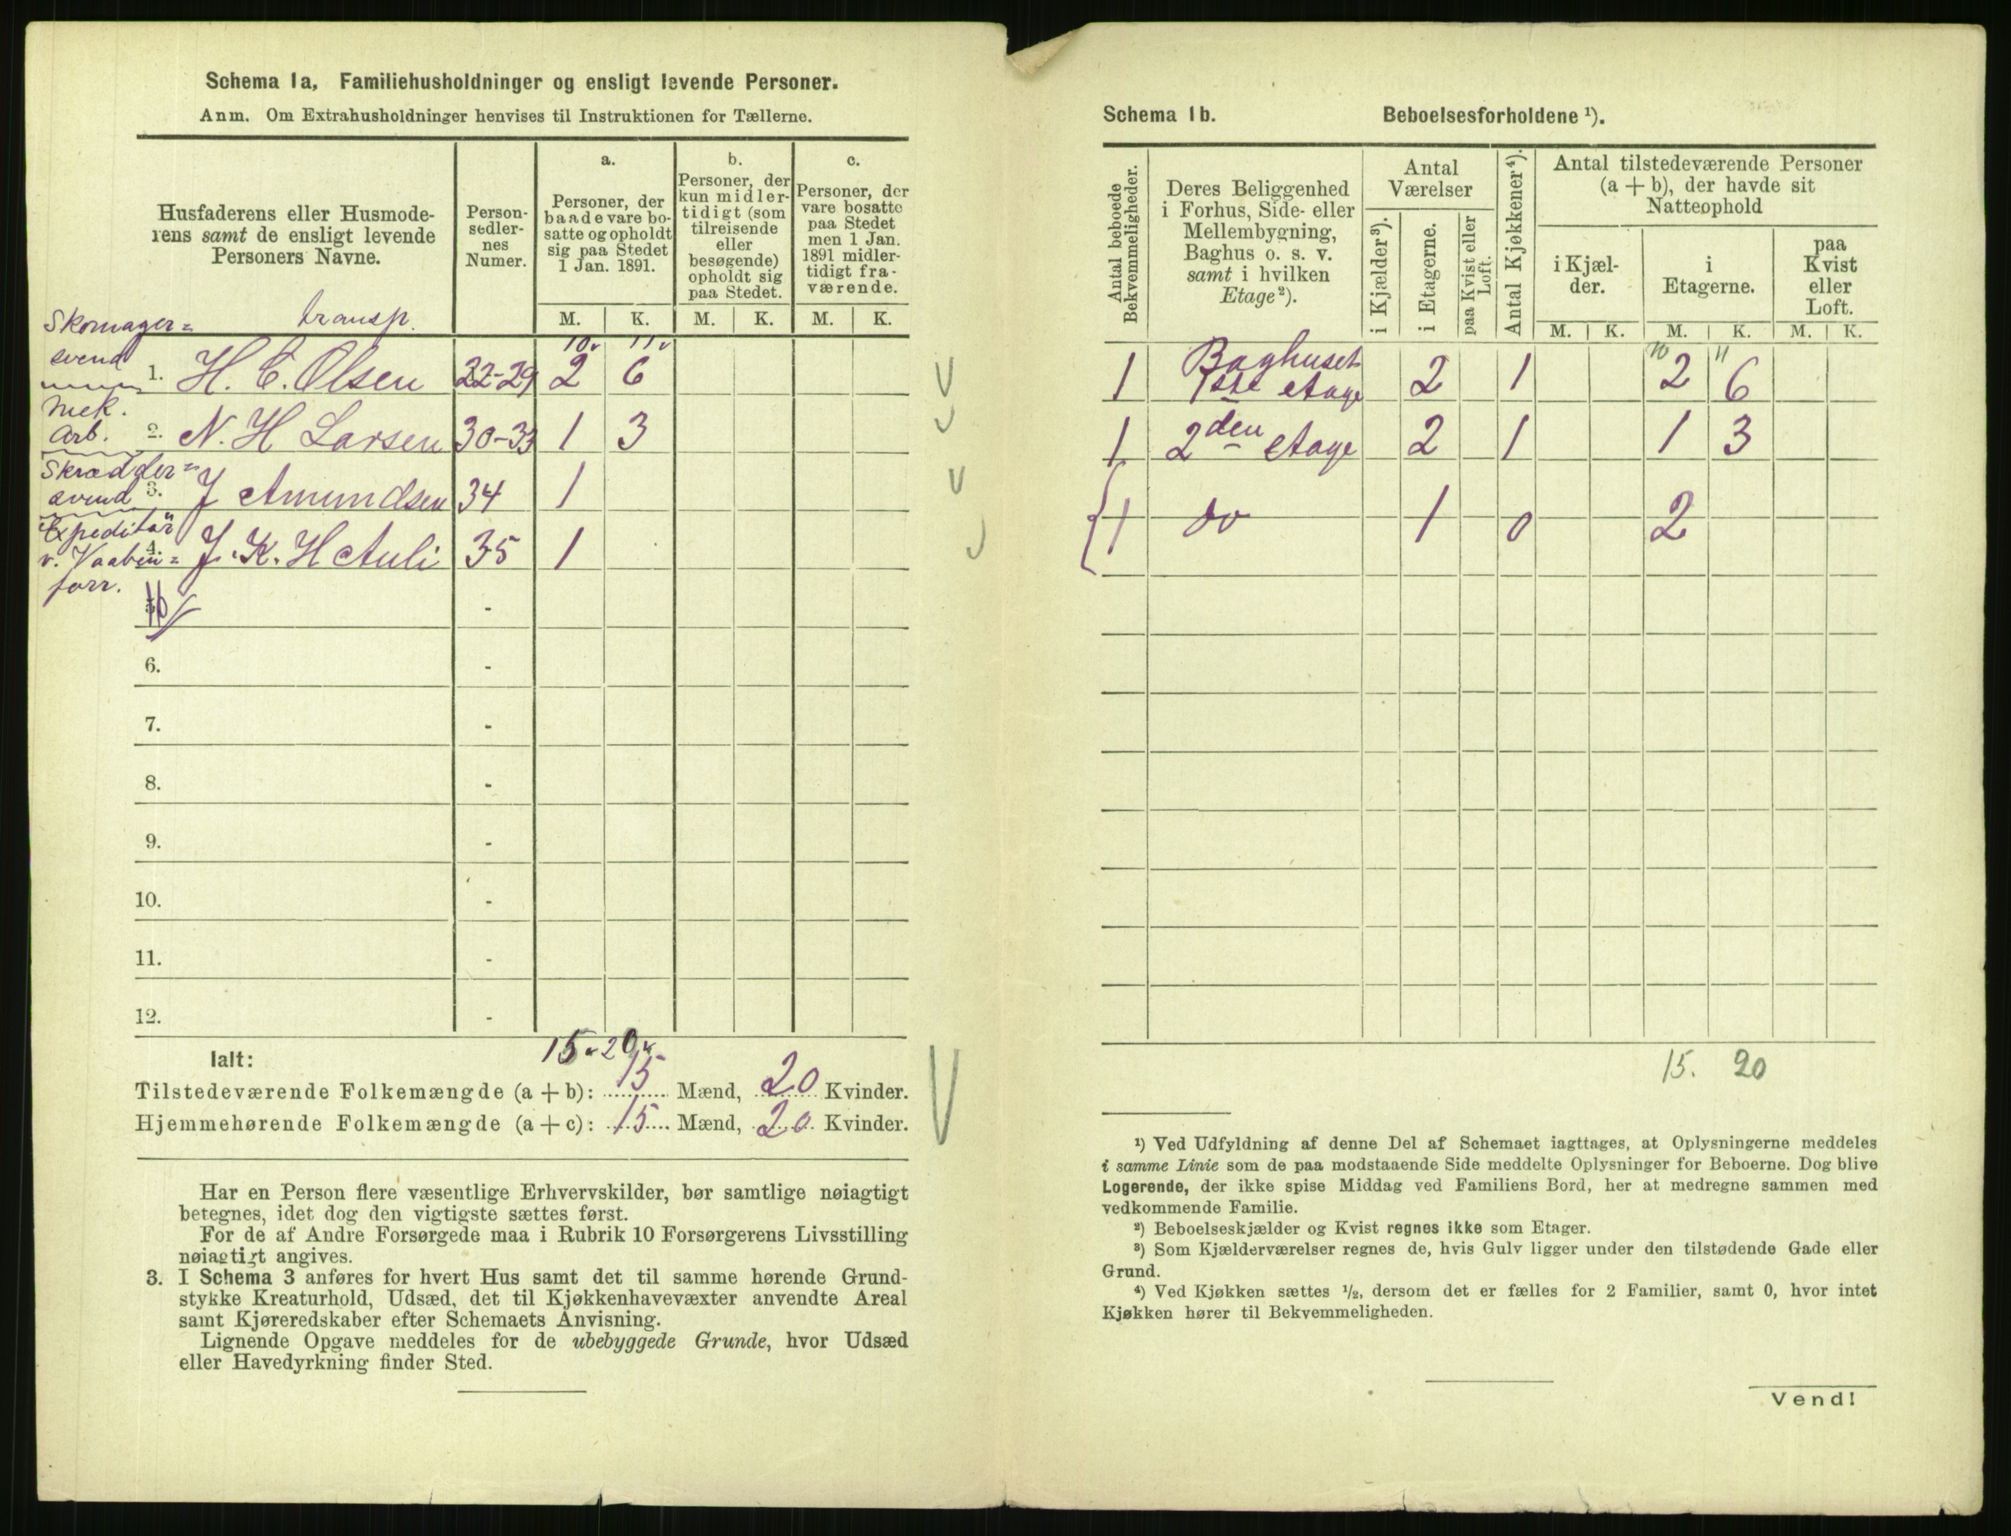 Schema 1a, Familiehusholdninger og ensligt levende Personer.
Anm. Om Extrahusholdninger henvises til Instruktionen for Tællerne.
Husfaderens eller Husmode-
rens samt de ensligt levende
Personers Navne.
Person-
sedler-
nes
Numer.
a.
Personer, der
baade vare bo-
satte og opholdt
sig paa Stedet
1 Jan. 1891.
b.
Personer, der
kun midler-
tidigt (som
tilreisende
eller
besøgende)
opholdt sig
paa Stedet.
c.
Personer, der
vare bosatte
paa Stedet
men 1 Jan.
1891 midler-
tidigt fra-
værende.
M. K. M. K. M. K.
transp. 10 11
Skomager=
svend 1. H. C. Olsen 22-29 2 6
Mek.
arb. 2. N. H Larsen 30-33 1 3
Skrædder=
svend 3. J Amundsen 34 1
Expeditør
v. Vaaben= 4. J. K. H Auli 35 1
forr.
-
6. -
7. -
8. -
9. -
10. -
11. -
12. -
15 20
Ialt:
Tilstedeværende Folkemængde (a + b): 15 Mænd, 20 Kvinder.
Hjemmehørende Folkemængde (a + c): 15 Mænd, 20 Kvinder.
Har en Person flere væsentlige Erhvervskilder, bør samtlige nøiagtigt
betegnes, idet dog den vigtigste sættes først.
For de af Andre Forsørgede maa i Rubrik 10 Forsørgerens Livsstilling
nøiagtigt angives.
3. I Schema 3 anføres for hvert Hus samt det til samme hørende Grund-
stykke Kreaturhold, Udsæd, det til Kjøkkenhavevæxter anvendte Areal
samt Kjøreredskaber efter Schemaets Anvisning.
Lignende Opgave meddeles for de ubebyggede Grunde, hvor Udsæd
eller Havedyrkning finder Sted.
Schema 1b. Beboelsesforholdene ¹).
Antal beboede
Bekvemmeligheder.
Deres Beliggenhed
i Forhus, Side- eller
Mellembygning,
Baghus o. s. v.
samt i hvilken
Etage²).
Antal
Værelser
i Kjælder³).
i Etagerne.
paa Kvist eller
Loft.
Antal Kjøkkener⁴).
Antal tilstedeværende Personer
(a + b), der havde sit
Natteophold
i Kjæl-
der.
i
Etagerne.
paa
Kvist
eller
Loft.
M. K. M. K. M. K.
10 11
1 Baghuset
1ste etage 2 1 2 6
1 2den etage 2 1 1 3
1 do 1 0 2
15. 20
¹) Ved Udfyldning af denne Del af Schemaet iagttages, at Oplysningerne meddeles
i samme Linie som de paa modstaaende Side meddelte Oplysninger for Beboerne. Dog blive
Logerende, der ikke spise Middag ved Familiens Bord, her at medregne sammen med
vedkommende Familie.
²) Beboelseskjælder og Kvist regnes ikke som Etager.
³) Som Kjælderværelser regnes de, hvis Gulv ligger under den tilstødende Gade eller
Grund.
⁴) Ved Kjøkken sættes ½, dersom det er fælles for 2 Familier, samt 0, hvor intet
Kjøkken hører til Bekvemmeligheden.
Vend!